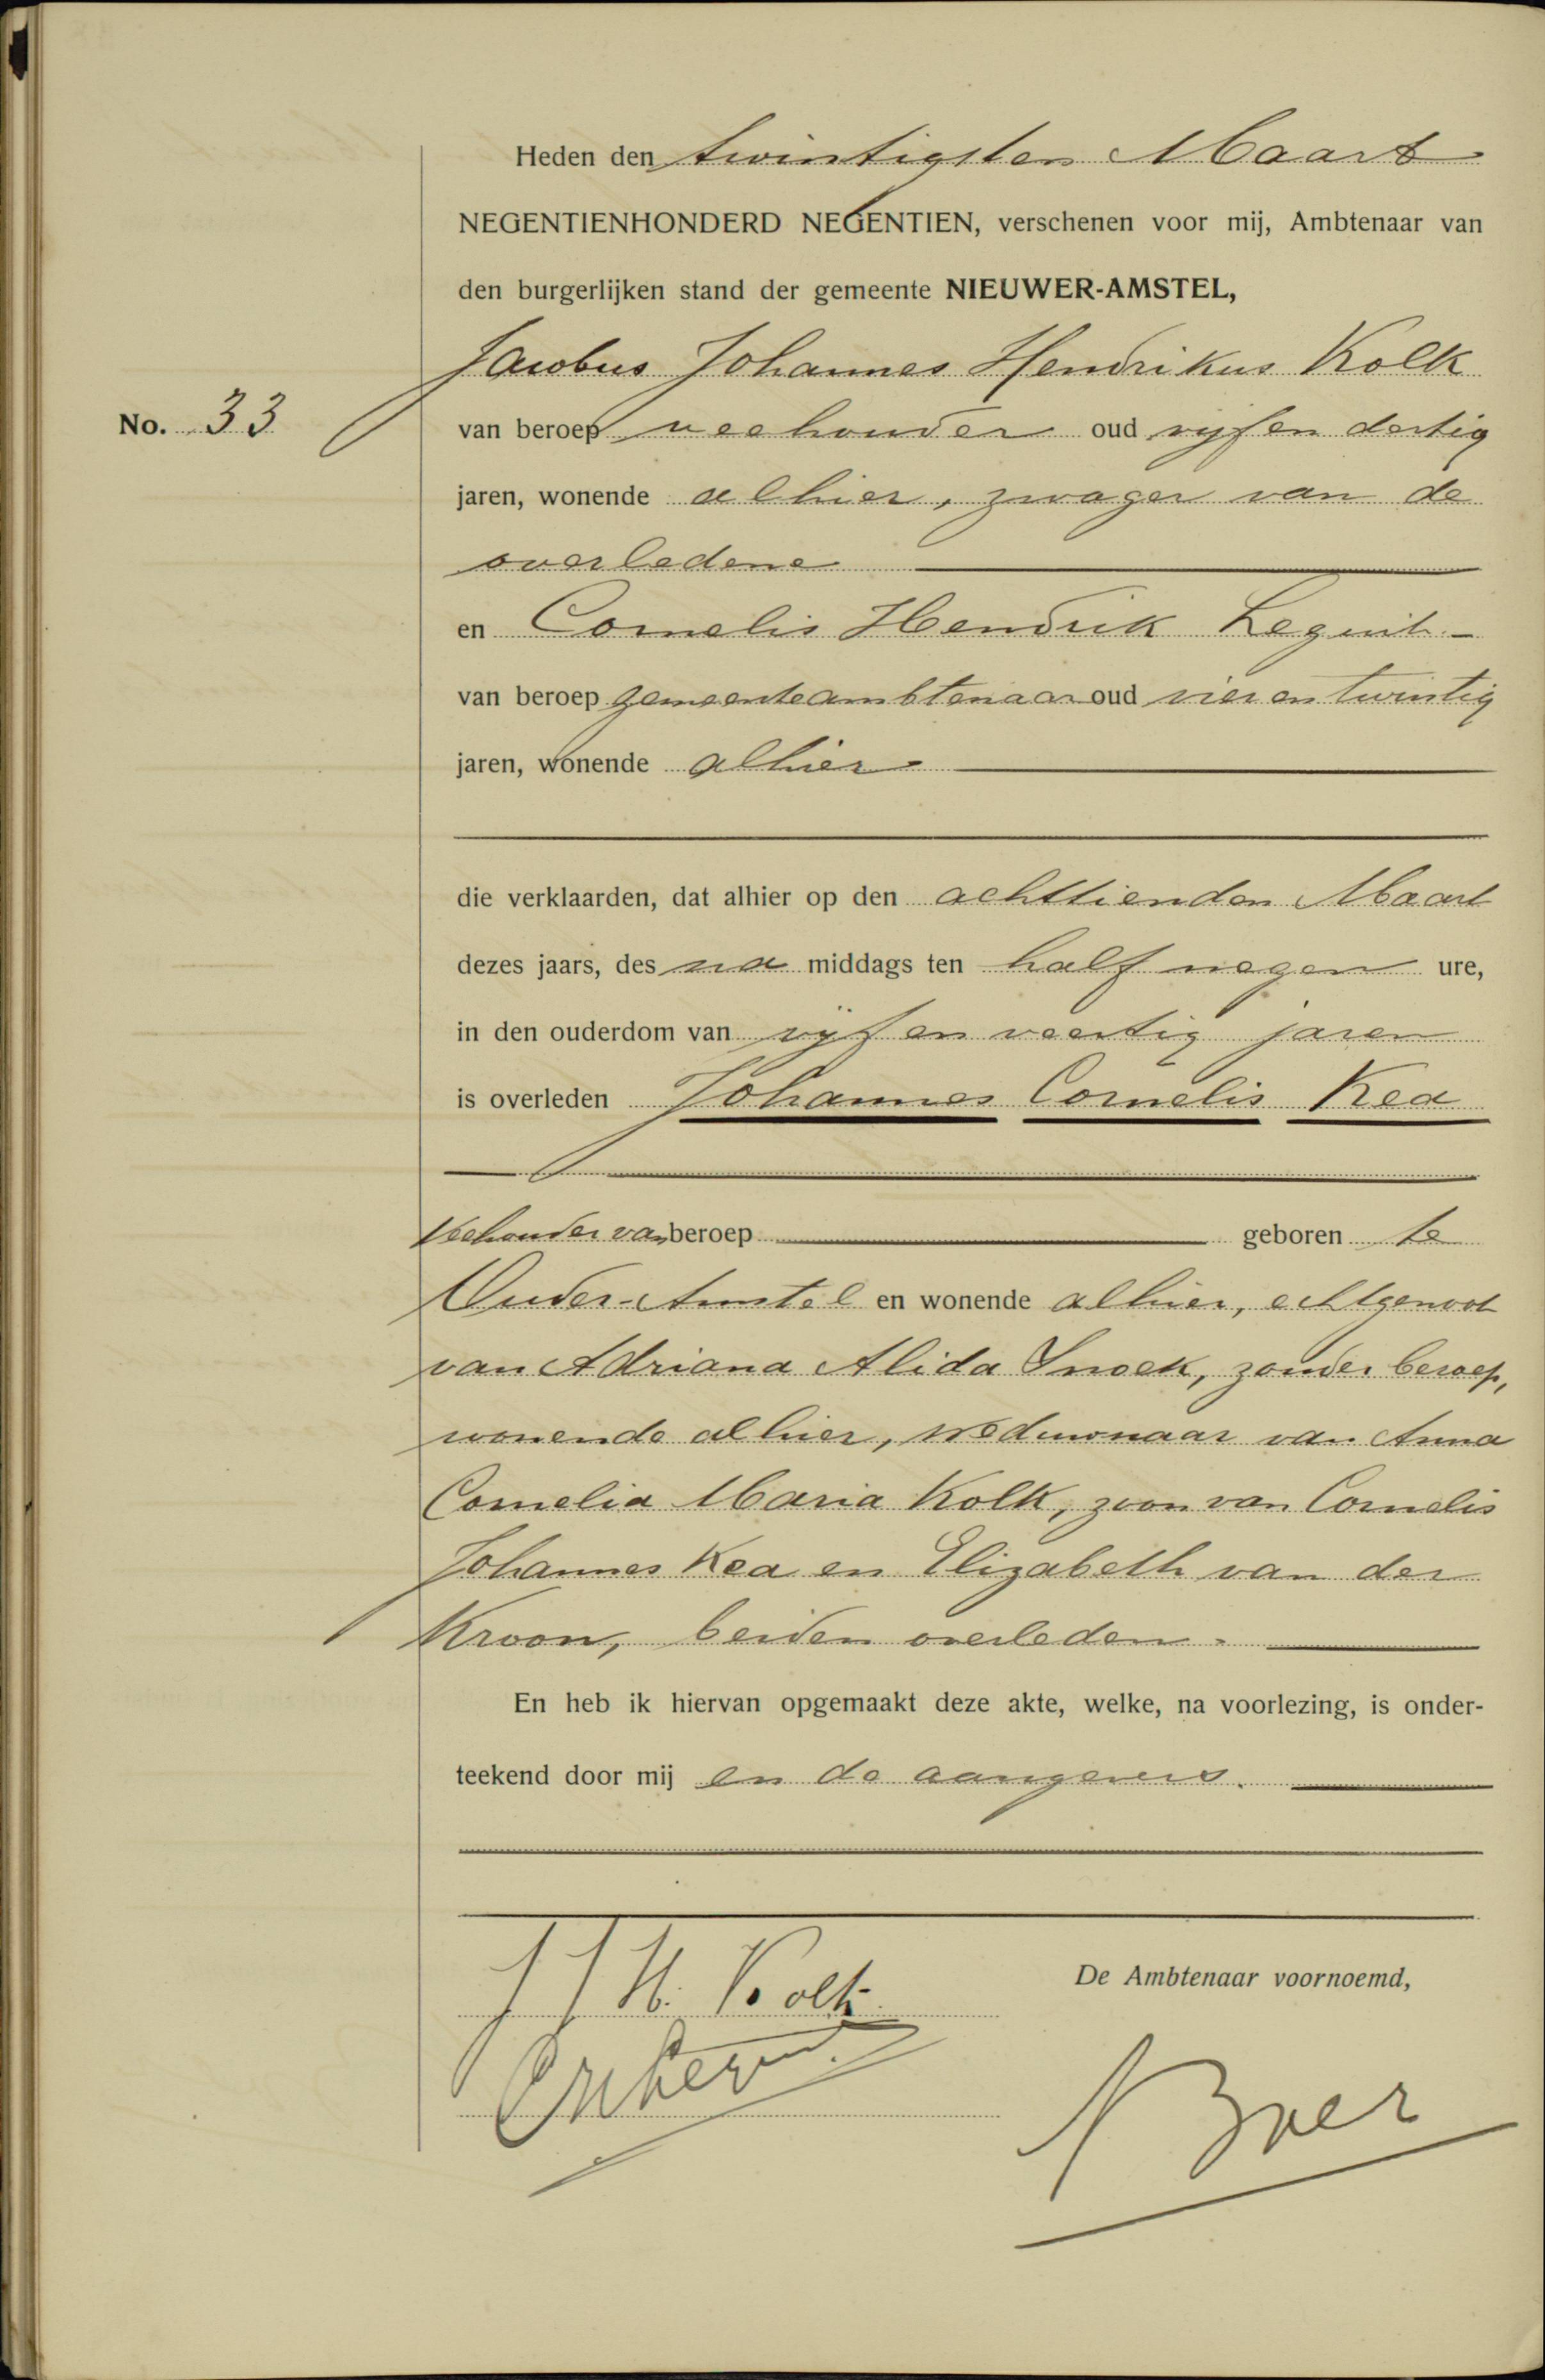 Heden den twintigsten Maart
NEGENTIENHONDERD NEGENTIEN, verschenen voor mij, Ambtenaar van
den burgerlijken stand der gemeente NIEUWER-AMSTEL,
Jacobus Johannes Hendrikus Kolk
No. 33
van beroep veehouder oud vijf en dertig
jaren, wonende alhier, zwager van de
overledene
en Cornelis Hendrik Leguit
van beroep gemeenteambtenaar oud vier en twintig
jaren, wonende alhier
die verklaarden, dat alhier op den achttienden Maart
dezes jaars, des na middags ten half negen ure,
in den ouderdom van vijf en veertig jaren
is overleden Johannes Cornelis Kea
Veehouder van beroep geboren te
Ouder-Amstel en wonende alhier, echtgenoot
van Adriana Alida Snoek, zonder beroep,
wonende alhier, weduwnaar van Anna
Cornelia Maria Kolk, zoon van Cornelis
Johannes Kea en Elizabeth van der
Kroon, beiden overleden.
En heb ik hiervan opgemaakt deze akte, welke, na voorlezing, is onder-
teekend door mij en de aangevers.
J J H. Kolk
De Ambtenaar voornoemd,